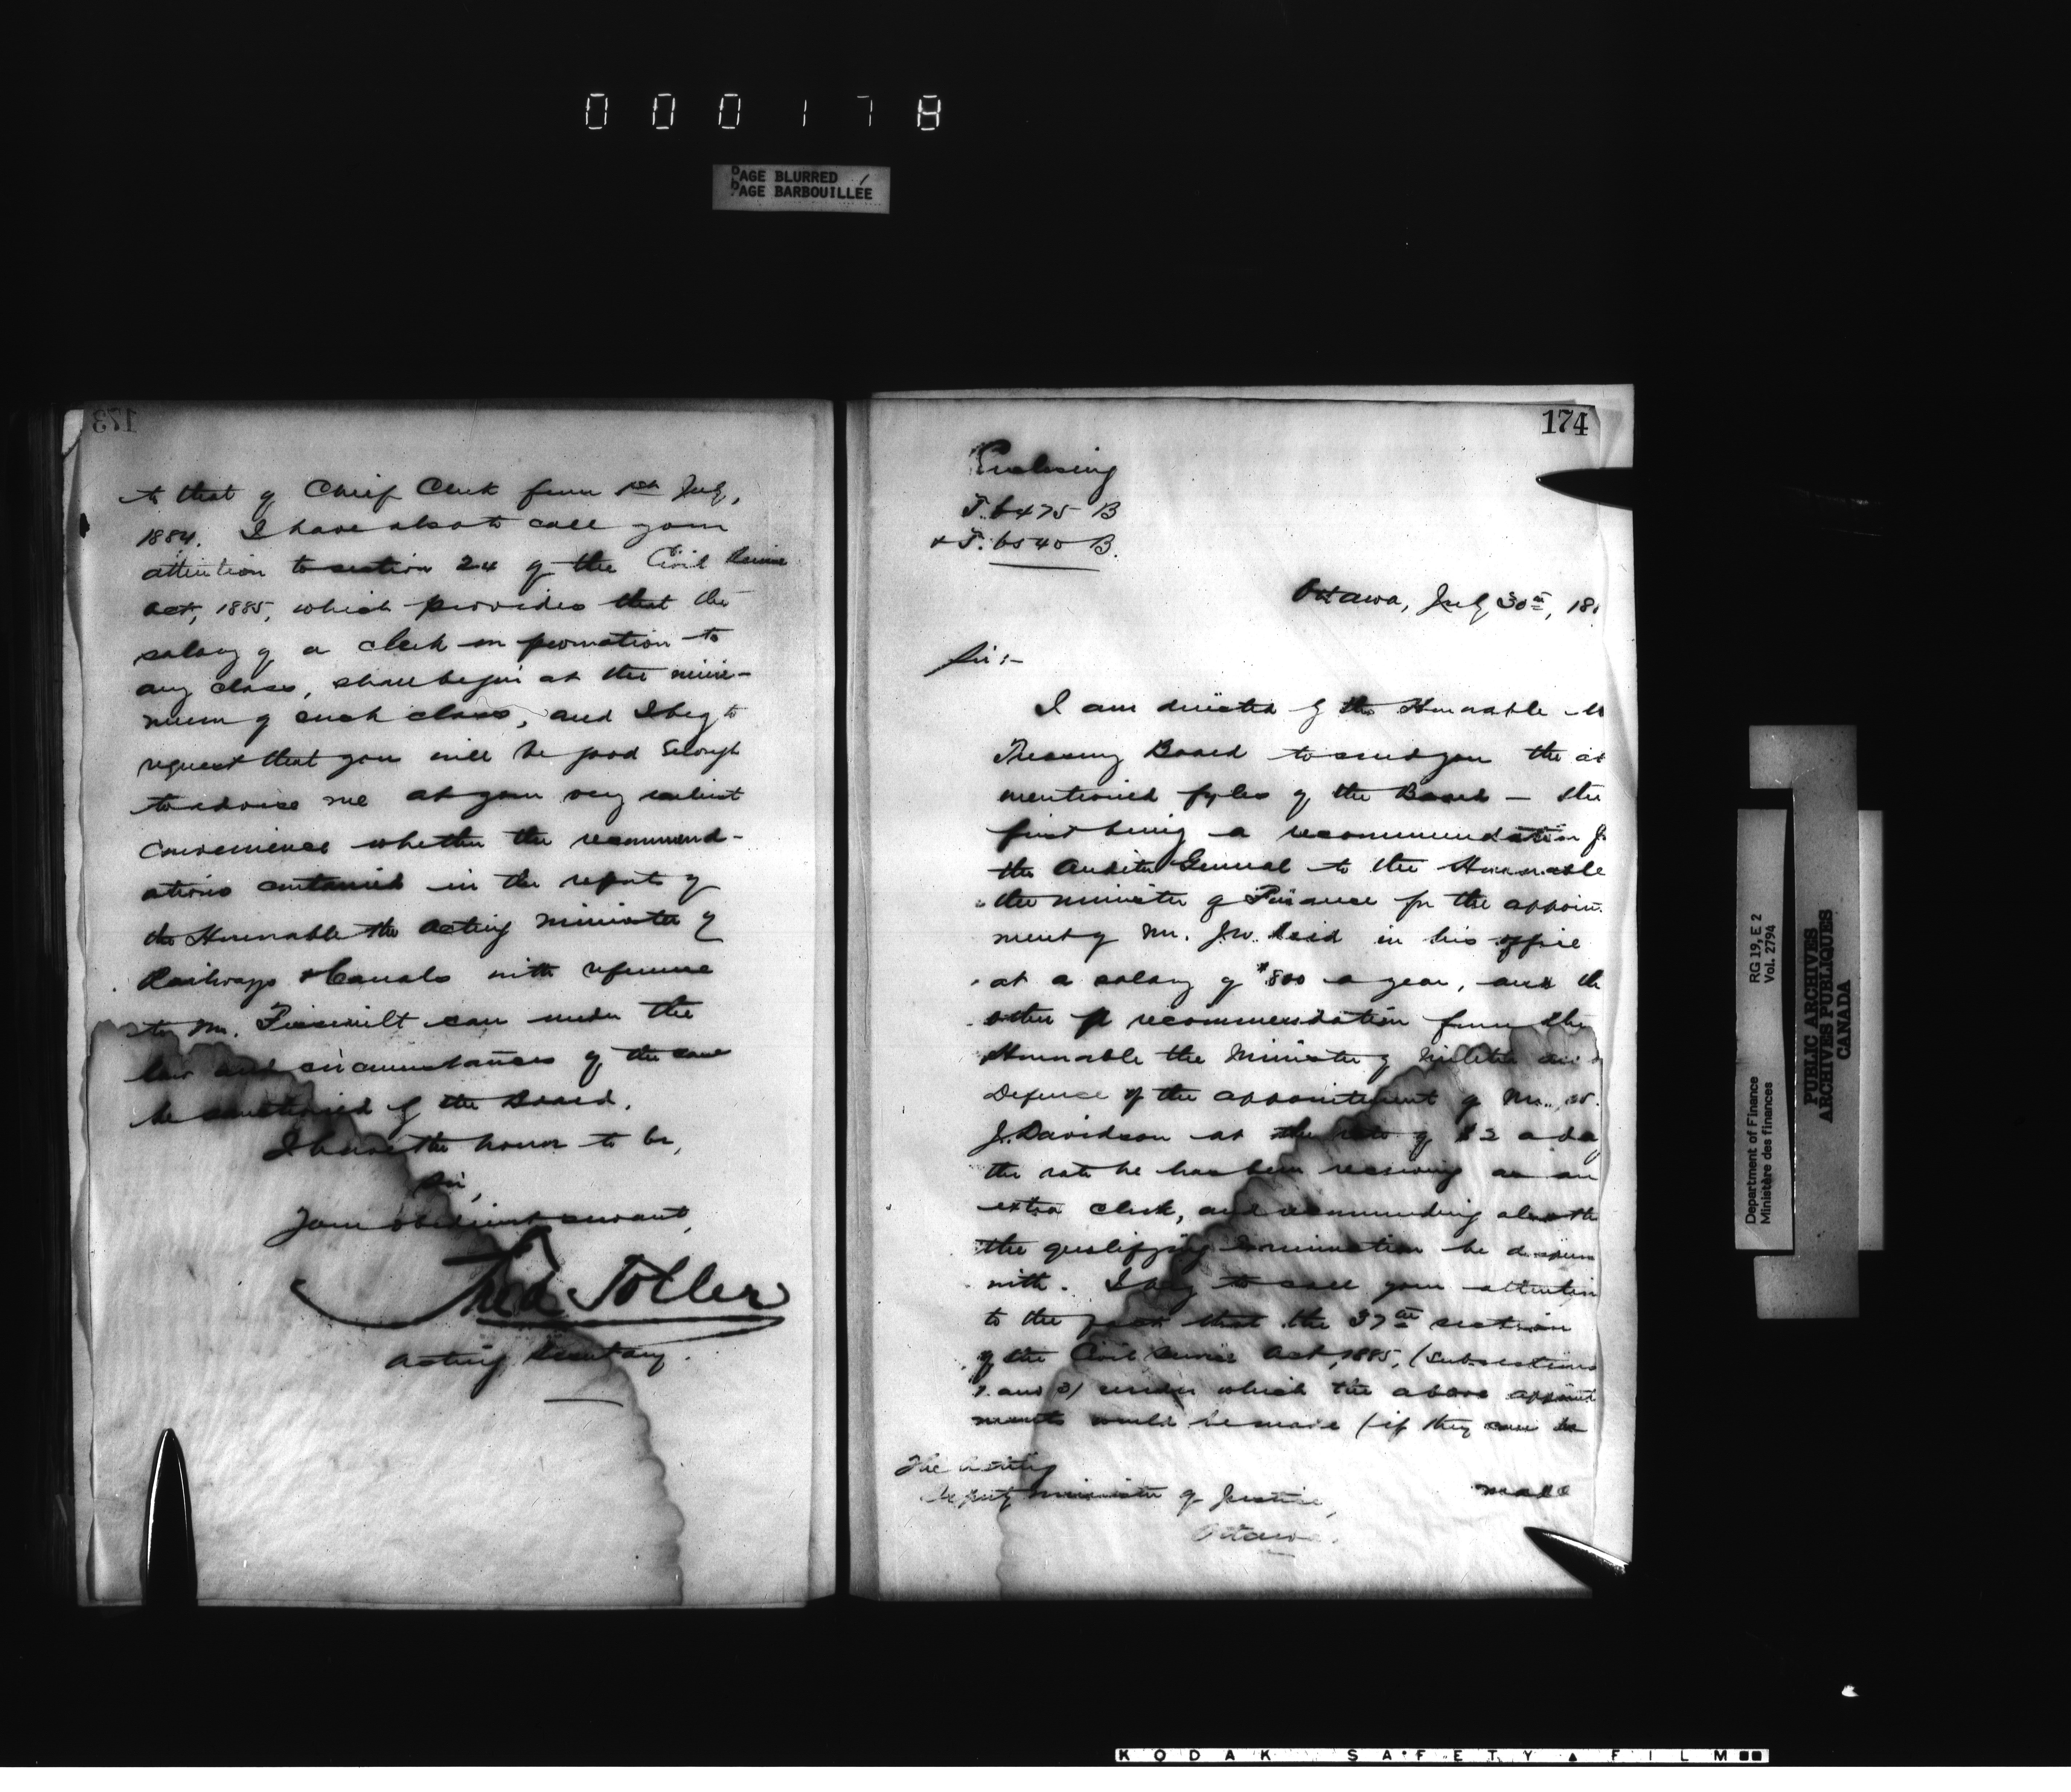 000178
PAGE BLURRED
PAGE BARBOUILLÉE
173
to that of Chief Clerk from 1st July,
1884. I have also to call your
attention to section 24 of the Civil Service
Act, 1885, which provides that the
salary of a clerk on promotion to
any class, shall begin at the mini-
mum of such class, and I beg to
request that you will be good enough
to advise me at your very earliest
convenience whether the recommend-
ations contained in the report of
the Honorable the Acting Minister of
Railways & Canals with reference
to Mr. can under the
law and circumstances of the case
be sanctioned by the Board.
I have the honor to be,
Sir,
Your obedient servant,
Fred Toller
Acting Secretary.
174
Enclosing
T. 6475 B
& T. 6540 B.
Ottawa, July 30th, 18
Sir:-
I am directed by the Honorable
Treasury Board to send you the
mentioned fyles of the Board — the
first being a recommendation
the Auditor General to the Honorable
the Minister of Finance for the appoint
ment of Mr. J.W. Reid in his office
at a salary of $800 a year, and th
other a recommendation from the
Honorable the Minister of Militia and
Defence of the appointment of Mr. W.
J. Davidson at the rate of $2 a da
the rate he has been receiving as an
extra clerk, and recommending also th
the qualifying examination be dispens
with. I beg to call your attention
to the fact that the 37th section
of the Civil Service Act, 1885, (subsections
1 and 2) under which the above appoint
ments would be made (if they can be
The Acting
Deputy Minister of Justice,
Ottawa.
made
Department of Finance
Ministère des finances
RG 19, E 2
Vol. 2794
PUBLIC ARCHIVES
ARCHIVES PUBLIQUES
CANADA
KODAK SAFETY FILM